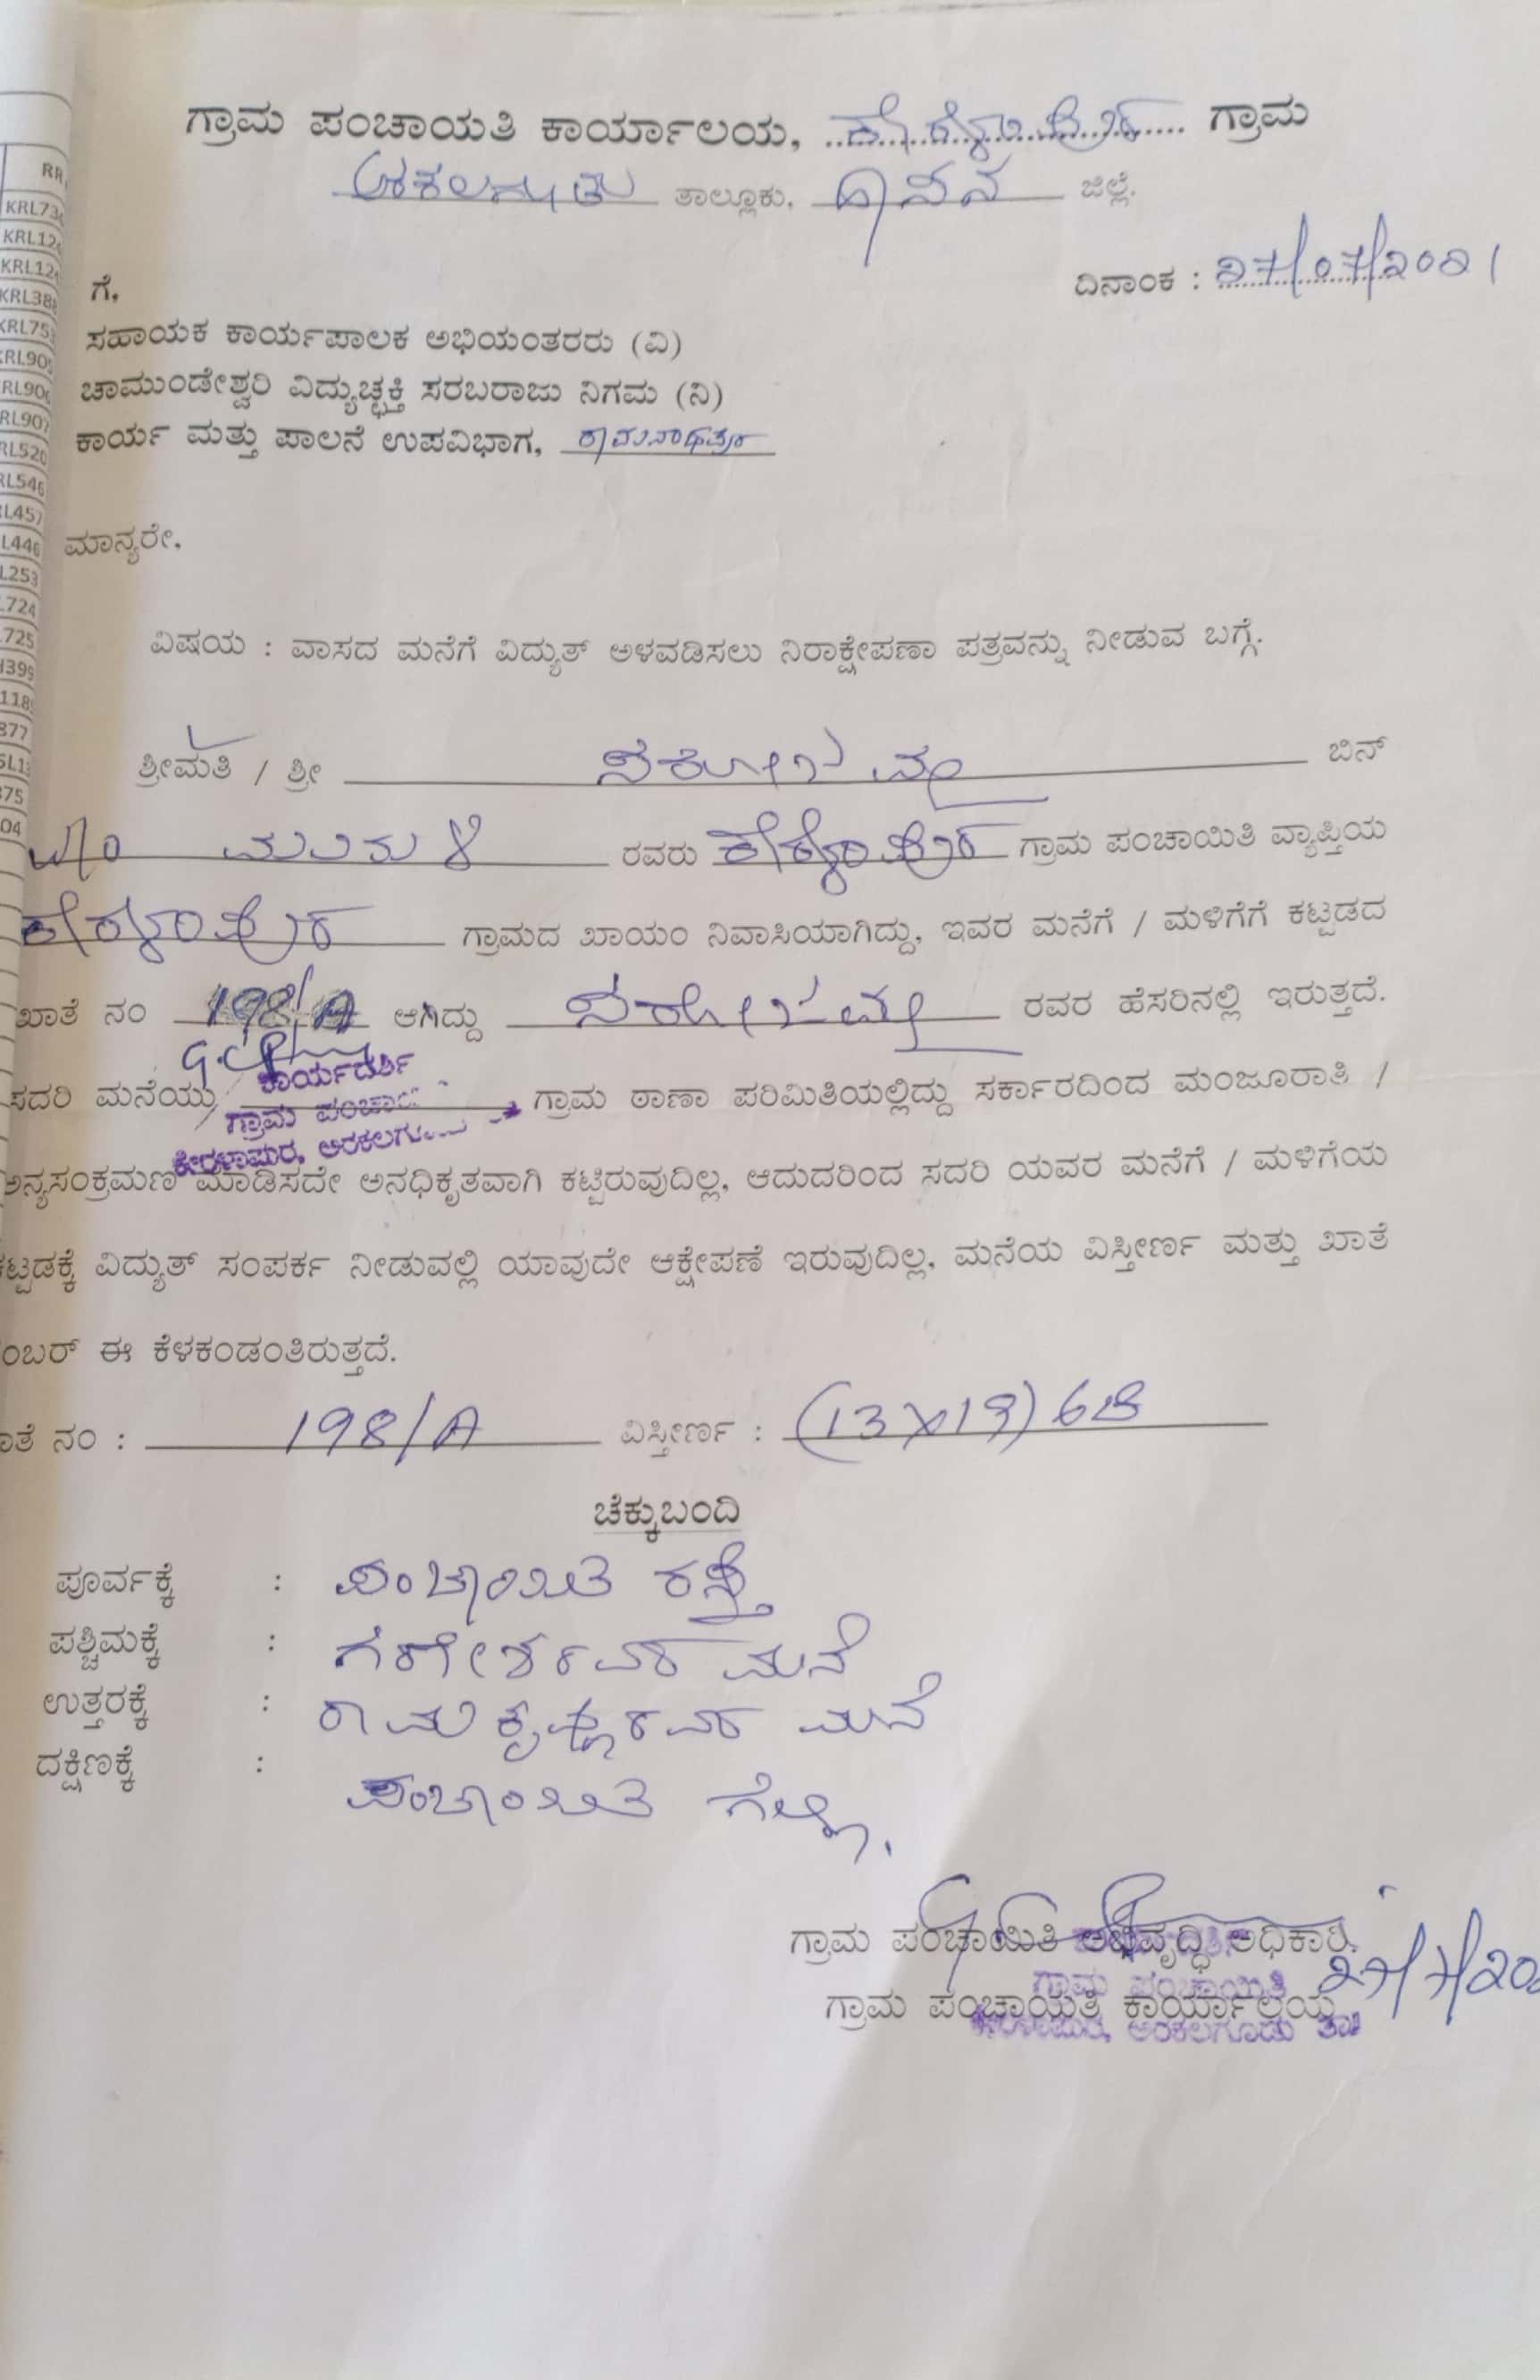 RR
KRL73
KRL12
KRL12
KRL38
KRL75
RL90
RL90
RL90
RL520
RL546
RL457
L446
L253
724
725
399
118
377
SL1
375
04
ಗ್ರಾಮ ಪಂಚಾಯತಿ ಕಾರ್ಯಾಲಯ, ಗ್ರಾಮ
ಅರಕಲಗೂಡು ತಾಲ್ಲೂಕು, ಹಾಸನ ಜಿಲ್ಲೆ.
ದಿನಾಂಕ : 27/07/2021
ಗೆ,
ಸಹಾಯಕ ಕಾರ್ಯಪಾಲಕ ಅಭಿಯಂತರರು (ವಿ)
ಚಾಮುಂಡೇಶ್ವರಿ ವಿದ್ಯುಚ್ಛಕ್ತಿ ಸರಬರಾಜು ನಿಗಮ (ನಿ)
ಕಾರ್ಯ ಮತ್ತು ಪಾಲನೆ ಉಪವಿಭಾಗ, ರಾಮನಾಥಪುರ
ಮಾನ್ಯರೇ,
ವಿಷಯ : ವಾಸದ ಮನೆಗೆ ವಿದ್ಯುತ್ ಅಳವಡಿಸಲು ನಿರಾಕ್ಷೇಪಣಾ ಪತ್ರವನ್ನು ನೀಡುವ ಬಗ್ಗೆ.
ಶ್ರೀಮತಿ / ಶ್ರೀ ಸರೋಜಮ್ಮ ಬಿನ್
W/o ರವರು ಗ್ರಾಮ ಪಂಚಾಯಿತಿ ವ್ಯಾಪ್ತಿಯ
ಗ್ರಾಮದ ಖಾಯಂ ನಿವಾಸಿಯಾಗಿದ್ದು, ಇವರ ಮನೆಗೆ / ಮಳಿಗೆಗೆ ಕಟ್ಟಡದ
ಖಾತೆ ನಂ 198/A ಆಗಿದ್ದು ಸರೋಜಮ್ಮ ರವರ ಹೆಸರಿನಲ್ಲಿ ಇರುತ್ತದೆ.
ಸದರಿ ಮನೆಯು ಗ್ರಾಮ ಠಾಣಾ ಪರಿಮಿತಿಯಲ್ಲಿದ್ದು ಸರ್ಕಾರದಿಂದ ಮಂಜೂರಾತಿ /
ಕಾರ್ಯದರ್ಶಿ
ಗ್ರಾಮ ಪಂಚಾ
ಅನ್ಯಸಂಕ್ರಮಣ ಮಾಡಿಸದೇ ಅನಧಿಕೃತವಾಗಿ ಕಟ್ಟಿರುವುದಿಲ್ಲ, ಆದುದರಿಂದ ಸದರಿ ಯವರ ಮನೆಗೆ / ಮಳಿಗೆಯ
ಕಟ್ಟಡಕ್ಕೆ ವಿದ್ಯುತ್ ಸಂಪರ್ಕ ನೀಡುವಲ್ಲಿ ಯಾವುದೇ ಆಕ್ಷೇಪಣೆ ಇರುವುದಿಲ್ಲ, ಮನೆಯ ವಿಸ್ತೀರ್ಣ ಮತ್ತು ಖಾತೆ
ಂಬರ್ ಈ ಕೆಳಕಂಡಂತಿರುತ್ತದೆ.
ಾತೆ ನಂ : 198/A ವಿಸ್ತೀರ್ಣ : (13X19)
ಚೆಕ್ಕುಬಂದಿ
ಪೂರ್ವಕ್ಕೆ : ಪಂಚಾಯಿತಿ ರಸ್ತೆ
ಪಶ್ಚಿಮಕ್ಕೆ : ಗಣೇಶರವರ ಮನೆ
ಉತ್ತರಕ್ಕೆ : ರಾಮಕೃಷ್ಣರವರ ಮನೆ
ದಕ್ಷಿಣಕ್ಕೆ : ಪಂಚಾಯಿತಿ ಗಲ್ಲಿ.
ಗ್ರಾಮ ಪಂಚಾಯಿತಿ ಅಭಿವೃದ್ಧಿ ಅಧಿಕಾರಿ.
ಗ್ರಾಮ ಪಂಚಾಯಿತಿ
27/7/20
ಗ್ರಾಮ ಪಂಚಾಯತಿ ಕಾರ್ಯಾಲಯ
ಅರಕಲಗೂಡು ತಾ॥